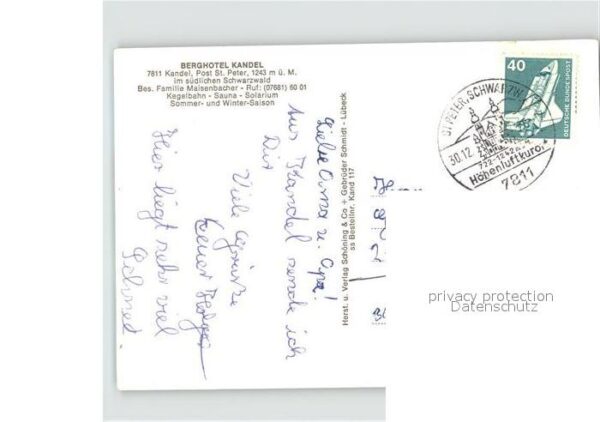 BERGHOTEL KANDEL
7811 Kandel, Post St. Peter, 1243 m ü. M.
im südlichen Schwarzwald
Bes. Familie Maisenbacher - Ruf: (07681) 60 01
Kegelbahn - Sauna - Solarium
Sommer- und Winter-Saison
Liebe Oma u. Opa!
Aus Kandel sende ich
Dir
Viele Grüsse
Euer Holger
Hier liegt sehr viel
Schnee!
Herst. u. Verlag Schöning & Co + Gebrüder Schmidt - Lübeck
ss Bestellnr. Kand 117
40
DEUTSCHE BUNDESPOST
ST PETER, SCHWARZW
30.12
722-1242
Höhenluftkurort
7811
privacy protection
Datenschutz